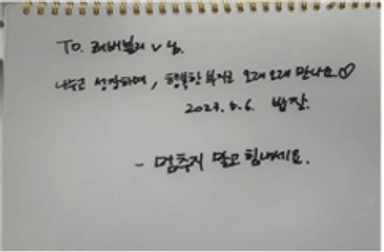 To. 러버블리 v 님.
나누고 성장하며, 행복한 부자로 오래오래 만나요♡
2023. 5. 6. 밥잘.
- 멈추지 말고 힘내세요.